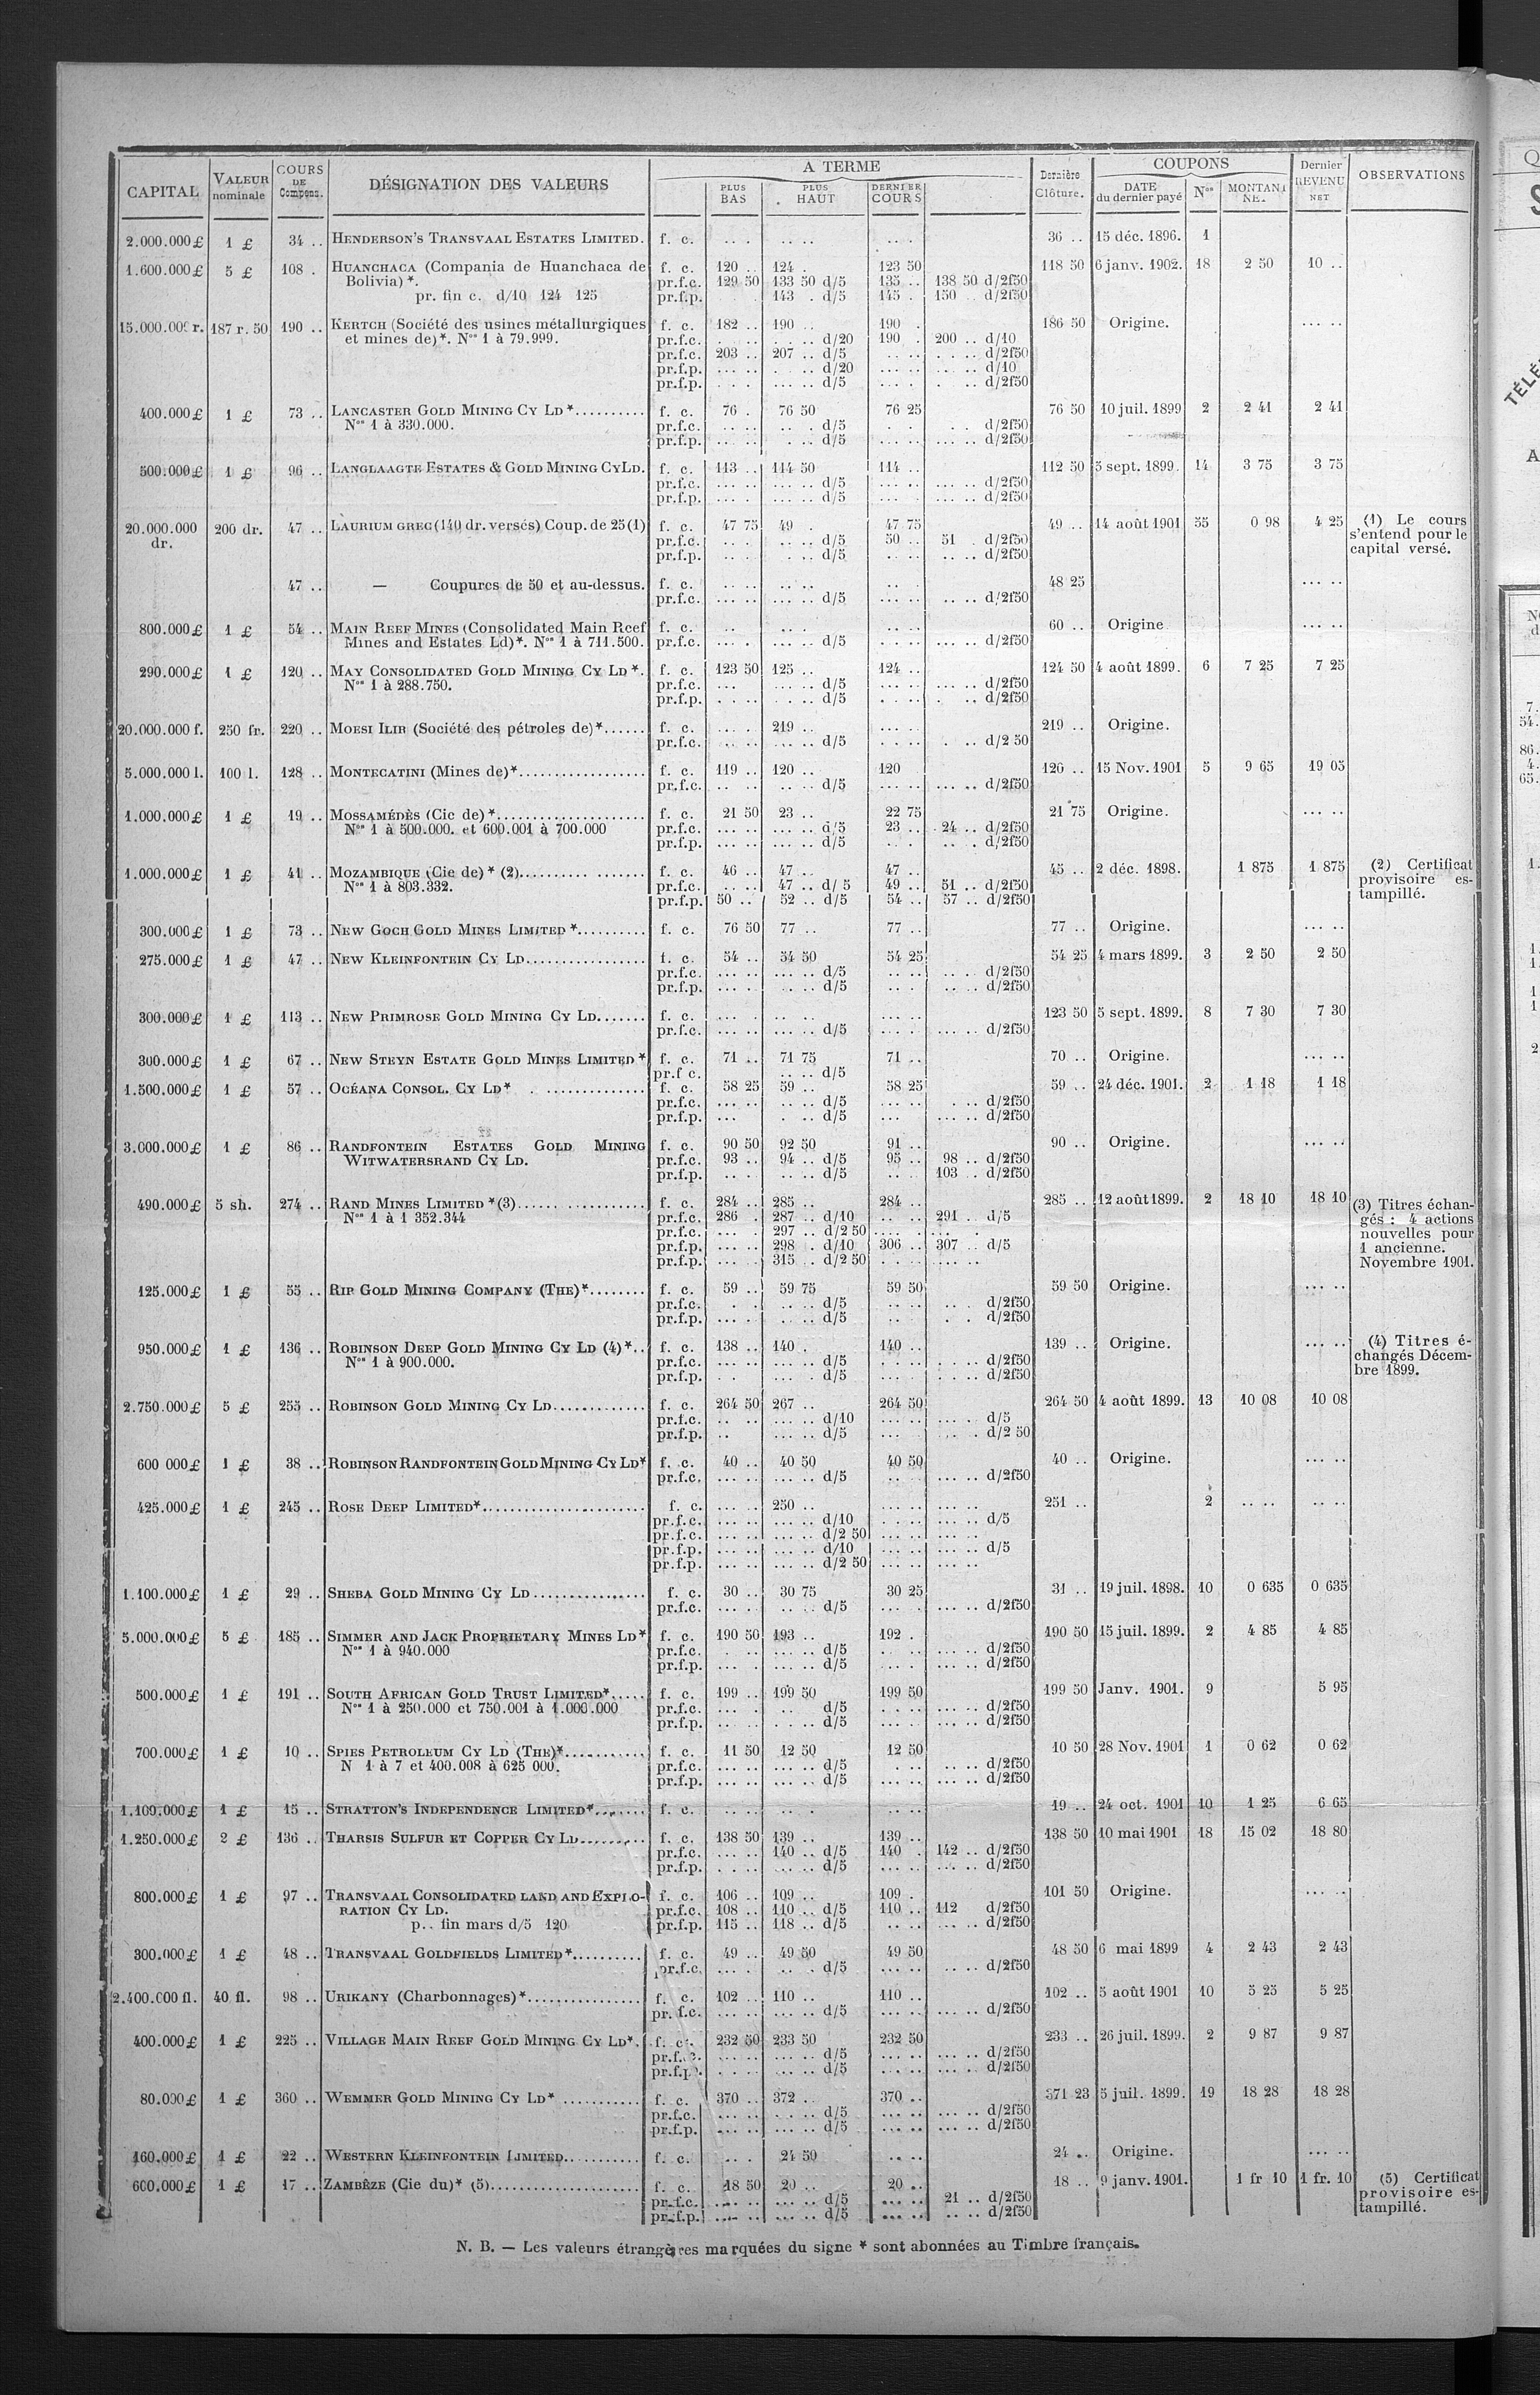 CAPITAL | VALEUR nominale | COURS DE Compens. | DÉSIGNATION DES VALEURS | A TERME | PLUS BAS | PLUS HAUT | DERNIER COURS | Dernière Clôture. | COUPONS | DATE du dernier payé | Nos | MONTANT NET | Dernier REVENU NET | OBSERVATIONS
2.000.000£ 1 £ 34 .. HENDERSON'S TRANSVAAL ESTATES LIMITED. f. c. 36 .. 15 déc. 1896. 1
1.600.000£ 5 £ 108 . HUANCHACA (Compania de Huanchaca de f. c. 120 .. 124 . 123 50 118 50 6 janv. 1902. 18 2 50 10 ..
Bolivia)*. pr.f.c. 129 50 133 50 d/5 135 .. 138 50 d/2f50
pr. fin c. d/10 124 125 pr.f.p. 143 . d/5 145 . 150 .. d/2f50
15.000.000 r. 187 r. 50 190 .. KERTCH (Société des usines métallurgiques f. c. 182 .. 190 .. 190 . 186 50 Origine. ... ..
et mines de)*. Nos 1 à 79.999. pr.f.c. d/20 190 . 200 .. d/10
pr.f.c. 203 .. 207 .. d/5 d/2f50
pr.f.p. ... .. d/20 d/10
pr.f.p. d/5 d/2f50
400.000£ 1 £ 73 .. LANCASTER GOLD MINING CY LD*.......... f. c. 76 . 76 50 76 25 76 50 10 juil. 1899 2 2 41 2 41
Nos 1 à 330.000. pr.f.c. d/5 d/2f50
pr.f.p. d/5 d/2f50
500.000£ 1 £ 96 .. LANGLAAGTE ESTATES & GOLD MINING CY LD. f. c. 113 .. 114 50 114 .. 112 50 5 sept. 1899. 14 3 75 3 75
pr.f.c. d/5 d/2f50
pr.f.p. d/5 d/2f50
20.000.000 200 dr. 47 .. LAURIUM GREC (140 dr. versés) Coup. de 25 (1) f. c. 47 75 49 . 47 75 49 .. 14 août 1901 55 0 98 4 25 (1) Le cours
dr. pr.f.c. d/5 50 .. 51 . d/2f50 s'entend pour le
pr.f.p. d/5 d/2f50 capital versé.
47 .. — Coupures de 50 et au-dessus. f. c. 48 25 ... ..
pr.f.c. d/5 d/2f50
800.000£ 1 £ 54 .. MAIN REEF MINES (Consolidated Main Reef f. c. 60 .. Origine ... ..
Mines and Estates Ld)*. Nos 1 à 711.500. pr.f.c. d/5 d/2f50
290.000£ 1 £ 120 .. MAY CONSOLIDATED GOLD MINING CY LD*. f. c. 123 50 125 .. 124 .. 124 50 4 août 1899. 6 7 25 7 25
Nos 1 à 288.750. pr.f.c. d/5 d/2f50
pr.f.p. d/5 d/2f50
20.000.000 f. 250 fr. 220 .. MOESI ILIR (Société des pétroles de)*...... f. c. 219 .. 219 .. Origine.
pr.f.c. d/5 d/2 50
5.000.000 l. 100 l. 128 .. MONTECATINI (Mines de)*.................. f. c. 119 .. 120 .. 120 120 .. 15 Nov. 1901 5 9 65 19 05
pr.f.c. d/5 d/2f50
1.000.000£ 1 £ 19 .. MOSSAMÉDÈS (Cie de)*..................... f. c. 21 50 23 .. 22 75 21 75 Origine. ... ..
Nos 1 à 500.000. et 600.001 à 700.000 pr.f.c. d/5 23 .. 24 .. d/2f50
pr.f.p. d/5 d/2f50
1.000.000£ 1 £ 41 .. MOZAMBIQUE (Cie de)* (2).......... ....... f. c. 46 .. 47 .. 47 .. 45 .. 2 déc. 1898. 1 875 1 875 (2) Certificat
Nos 1 à 803.332. pr.f.c. 47 .. d/ 5 49 .. 51 .. d/2f50 provisoire es-
pr.f.p. 50 .. 52 .. d/5 54 .. 57 .. d/2f50 tampillé.
300.000£ 1 £ 73 .. NEW GOCH GOLD MINES LIMITED*.......... f. c. 76 50 77 .. 77 .. 77 .. Origine. ... ..
275.000£ 1 £ 47 .. NEW KLEINFONTEIN CY LD................. f. c. 54 .. 54 50 54 25 54 25 4 mars 1899. 3 2 50 2 50
pr.f.c. d/5 d/2f50
pr.f.p. d/5 d/2f50
300.000£ 1 £ 113 .. NEW PRIMROSE GOLD MINING CY LD....... f. c. 123 50 5 sept. 1899. 8 7 30 7 30
pr.f.c. d/5 d/2f50
300.000£ 1 £ 67 .. NEW STEYN ESTATE GOLD MINES LIMITED* f. c. 71 .. 71 75 71 .. 70 .. Origine. ... ..
pr.f c. d/5
1.500.000£ 1 £ 57 .. OCÉANA CONSOL. CY LD* . .............. f. c. 58 25 59 .. 58 25 59 .. 24 déc. 1901. 2 1 18 1 18
pr.f.c. d/5 d/2f50
pr.f.p. d/5 d/2f50
3.000.000£ 1 £ 86 .. RANDFONTEIN ESTATES GOLD MINING f. c. 90 50 92 50 91 .. 90 .. Origine. ... ..
WITWATERSRAND CY LD. pr.f.c. 93 .. 94 .. d/5 95 .. 98 .. d/2f50
pr.f.p. d/5 103 .. d/2f50
490.000£ 5 sh. 274 .. RAND MINES LIMITED*(3)................. f. c. 284 .. 285 .. 284 .. 285 .. 12 août 1899. 2 18 10 18 10 (3) Titres échan-
Nos 1 à 1 352.344 pr.f.c. 286 . 287 .. d/10 291 .. d/5 gés : 4 actions
pr.f.c. 297 .. d/2 50 nouvelles pour
pr.f.p. 298 . d/10 306 .. 307 .. d/5 1 ancienne.
pr.f.p. 315 .. d/2 50 Novembre 1901.
125.000£ 1 £ 55 .. RIP GOLD MINING COMPANY (THE)*........ f. c. 59 .. 59 75 59 50 59 50 Origine. ... ..
pr.f.c. d/5 d/2f50
pr.f.p. d/5 d/2f50
950.000£ 1 £ 136 .. ROBINSON DEEP GOLD MINING CY LD (4)*.. f. c. 138 .. 140 . 140 .. 139 .. Origine. ... .. (4) Titres é-
Nos 1 à 900.000. pr.f.c. d/5 d/2f50 changés Décem-
pr.f.p. d/5 d/2f50 bre 1899.
2.750.000£ 5 £ 255 .. ROBINSON GOLD MINING CY LD............. f. c. 264 50 267 .. 264 50 264 50 4 août 1899. 13 10 08 10 08
pr.f.c. d/10 d/5
pr.f.p. d/5 d/2 50
600 000£ 1 £ 38 .. ROBINSON RANDFONTEIN GOLD MINING CY LD* f. c. 40 .. 40 50 40 50 40 .. Origine. ... ..
pr.f.c. d/5 d/2f50
425.000£ 1 £ 245 .. ROSE DEEP LIMITED*....................... f. c. 250 .. 251 .. 2 .. .. .. ..
pr.f.c. d/10 d/5
pr.f.c. d/2 50
pr.f.p. d/10 d/5
pr.f.p. d/2 50
1.100.000£ 1 £ 29 .. SHEBA GOLD MINING CY LD................ f. c. 30 .. 30 75 30 25 31 .. 19 juil. 1898. 10 0 635 0 635
pr.f.c. d/5 d/2f50
5.000.000£ 5 £ 185 .. SIMMER AND JACK PROPRIETARY MINES LD* f. c. 190 50 193 .. 192 . 190 50 15 juil. 1899. 2 4 85 4 85
Nos 1 à 940.000 pr.f.c. d/5 d/2f50
pr.f.p. d/5 d/2f50
500.000£ 1 £ 191 .. SOUTH AFRICAN GOLD TRUST LIMITED*..... f. c. 199 .. 199 50 199 50 199 50 Janv. 1901. 9 5 95
Nos 1 à 250.000 et 750.001 à 1.000.000 pr.f.c. d/5 d/2f50
pr.f.p. d/5 d/2f50
700.000£ 1 £ 10 .. SPIES PETROLEUM CY LD (THE)*........... f. c. 11 50 12 50 12 50 10 50 28 Nov. 1901 1 0 62 0 62
N 1 à 7 et 400.008 à 625 000. pr.f.c. d/5 d/2f50
pr.f.p. d/5 d/2f50
1.100.000£ 1 £ 15 .. STRATTON'S INDEPENDENCE LIMITED*....... f. c. 19 .. 24 oct. 1901 10 1 25 6 65
1.250.000£ 2 £ 136 .. THARSIS SULFUR ET COPPER CY LD......... f. c. 138 50 139 .. 139 .. 138 50 10 mai 1901 18 15 02 18 80
pr.f.c. 140 .. d/5 140 . 142 .. d/2f50
pr.f.p. d/5 d/2f50
800.000£ 1 £ 97 .. TRANSVAAL CONSOLIDATED LAND AND EXPLO- f. c. 106 .. 109 .. 109 . 101 50 Origine. ... ..
RATION CY LD. pr.f.c. 108 .. 110 .. d/5 110 .. 112 d/2f50
p.. fin mars d/5 120 pr.f.p. 115 .. 118 .. d/5 d/2f50
300.000£ 1 £ 48 .. TRANSVAAL GOLDFIELDS LIMITED*.......... f. c. 49 .. 49 50 49 50 48 50 6 mai 1899 4 2 43 2 43
pr.f.c. d/5 d/2f50
2.400.000 fl. 40 fl. 98 .. URIKANY (Charbonnages)*................ f. c. 102 .. 110 .. 110 .. 102 .. 5 août 1901 10 5 25 5 25
pr. f.c. d/5 d/2f50
400.000£ 1 £ 225 .. VILLAGE MAIN REEF GOLD MINING CY LD*. f. c. 232 50 233 50 232 50 233 .. 26 juil. 1899. 2 9 87 9 87
pr.f.c. d/5 d/2f50
pr.f.p. d/5 d/2f50
80.000£ 1 £ 360 .. WEMMER GOLD MINING CY LD* ........... f. c. 370 .. 372 .. 370 .. 371 23 5 juil. 1899. 19 18 28 18 28
pr.f.c. d/5 d/2f50
pr.f.p. d/5 d/2f50
160.000£ 1 £ 22 .. WESTERN KLEINFONTEIN LIMITED........... f. c. 24 50 24 .. Origine. ... ..
600.000£ 1 £ 17 .. ZAMBÈZE (Cie du)* (5)..................... f. c. 18 50 20 .. 20 .. 18 .. 9 janv. 1901. 1 fr 10 1 fr. 10 (5) Certificat
pr.f.c. d/5 21 .. d/2f50 provisoire es-
pr.f.p. d/5 d/2f50 tampillé.
N. B. — Les valeurs étrangères marquées du signe * sont abonnées au Timbre français.